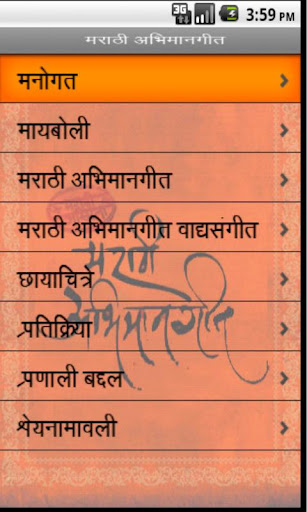 3G
3:59 PM
मराठी अभिमानगीत
मनोगत
मायबोली
मराठी अभिमानगीत
मराठी अभिमानगीत वाद्यसंगीत
छायाचित्रे
प्रतिक्रिया
प्रणाली बद्दल
श्रेयनामावली
मराठी
अभिमानगीत